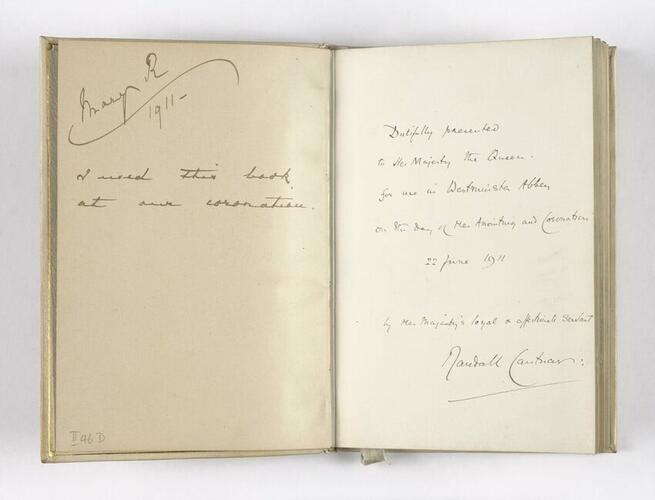 Mary R
1911-
I used this book
at our coronation.
II 46 D
Dutifully presented
to Her Majesty the Queen.
for use in Westminster Abbey
on the Day of Her Anointing and Coronation
22 June 1911
by Her Majesty's loyal & affectionate servant
Randall Cantuar: